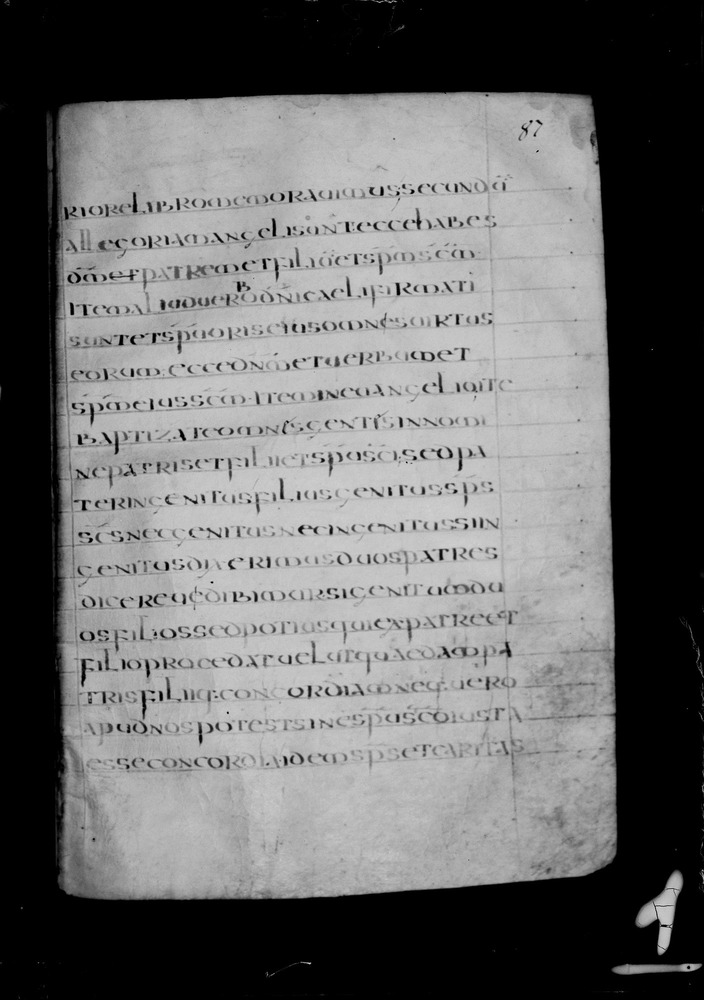 87
riorelibromemorauimussecundũ
allegoriamangelisuntecce habes
dm̄etpatremetfiliūetspm̄scm̄
itemaliuduerbodn̄icaelifirmati
suntetspūoriseiusomnesuirtus
eorum·eccednm̄etuerbumet
spm̄eiusscm̄·itemineuangelioite
baptizateomnesgentisinnomi
nepatrisetfiliietspussc̄isedpa
teringenitusfiliusgenitussps
scsnecgenitusnecingenitussiin
genitusdixerimusduospatres
dicere
osfiliossedpotiusquiexpatreet
filioprocedatuelutquaedampa
trisfiliiq:concordiamneq:uero
apudnospotestsinespuscōiusta
esseconcordiaidemspsetcaritas
1